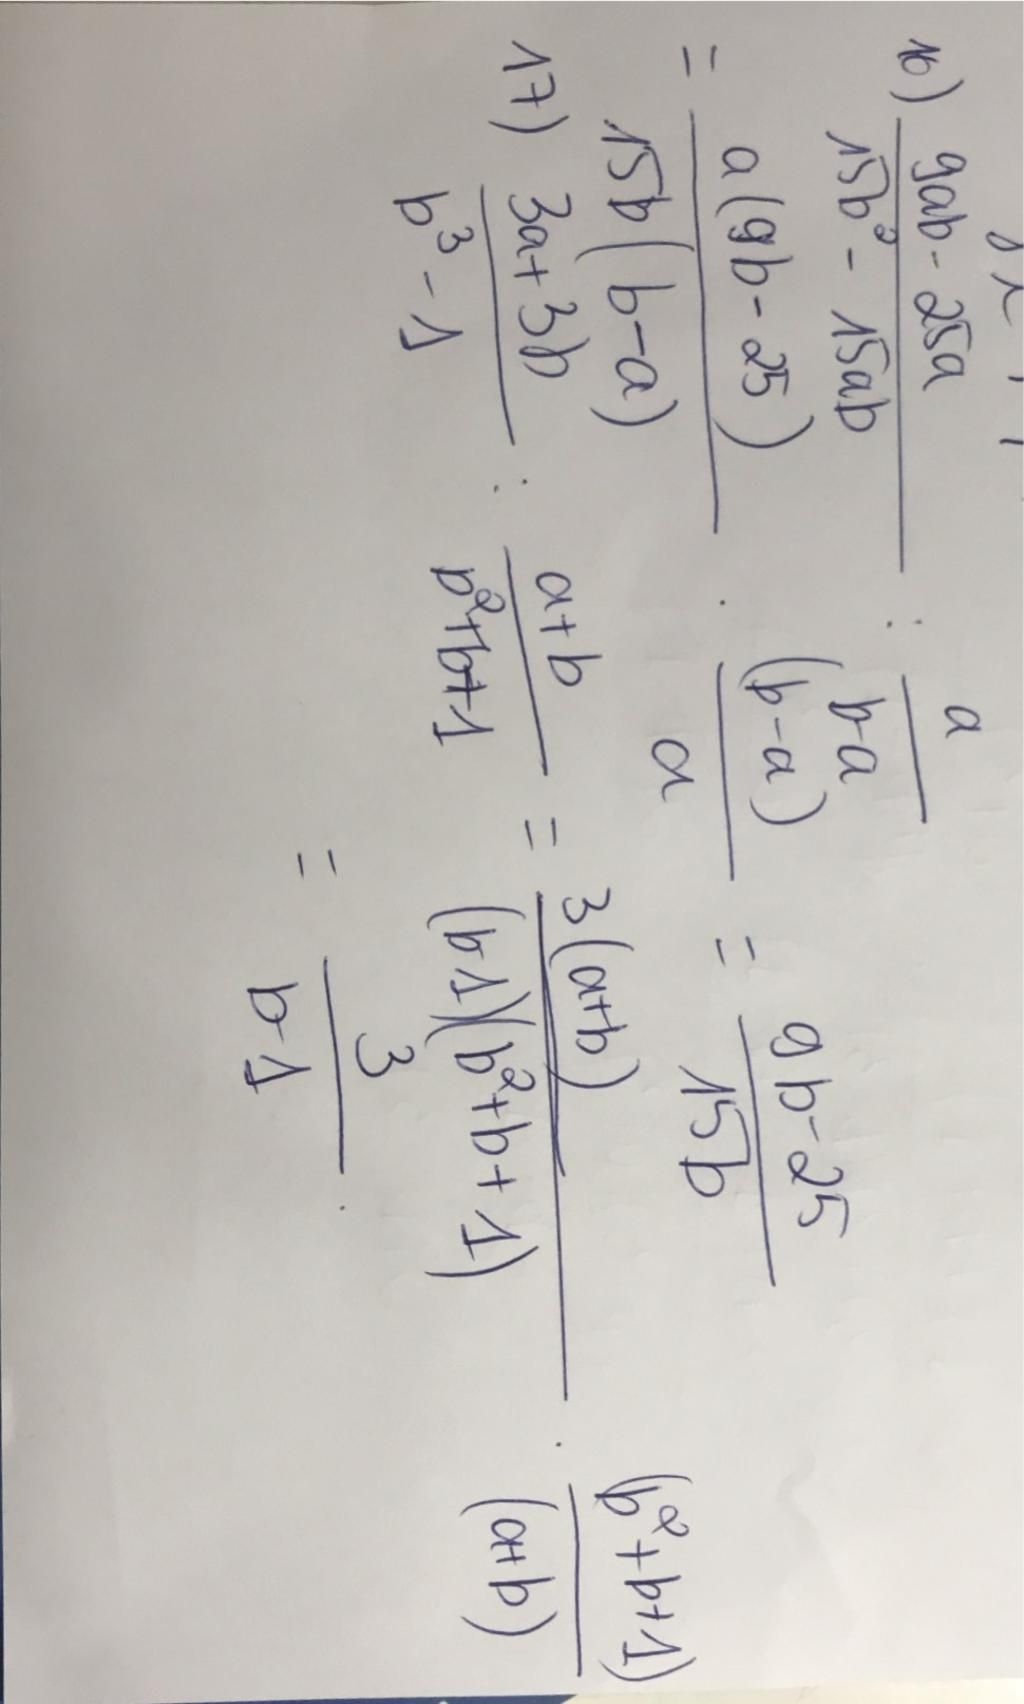 16) (9ab - 25a)/(15b² - 15ab) : a/(b-a)
= a(9b - 25)/(15b(b-a)) · (b-a)/a = (9b-25)/(15b)
17) (3a+3b)/(b³ - 1) : (a+b)/(b²+b+1) = 3(a+b)/((b-1)(b²+b+1)) · (b²+b+1)/(a+b)
= 3/(b-1).